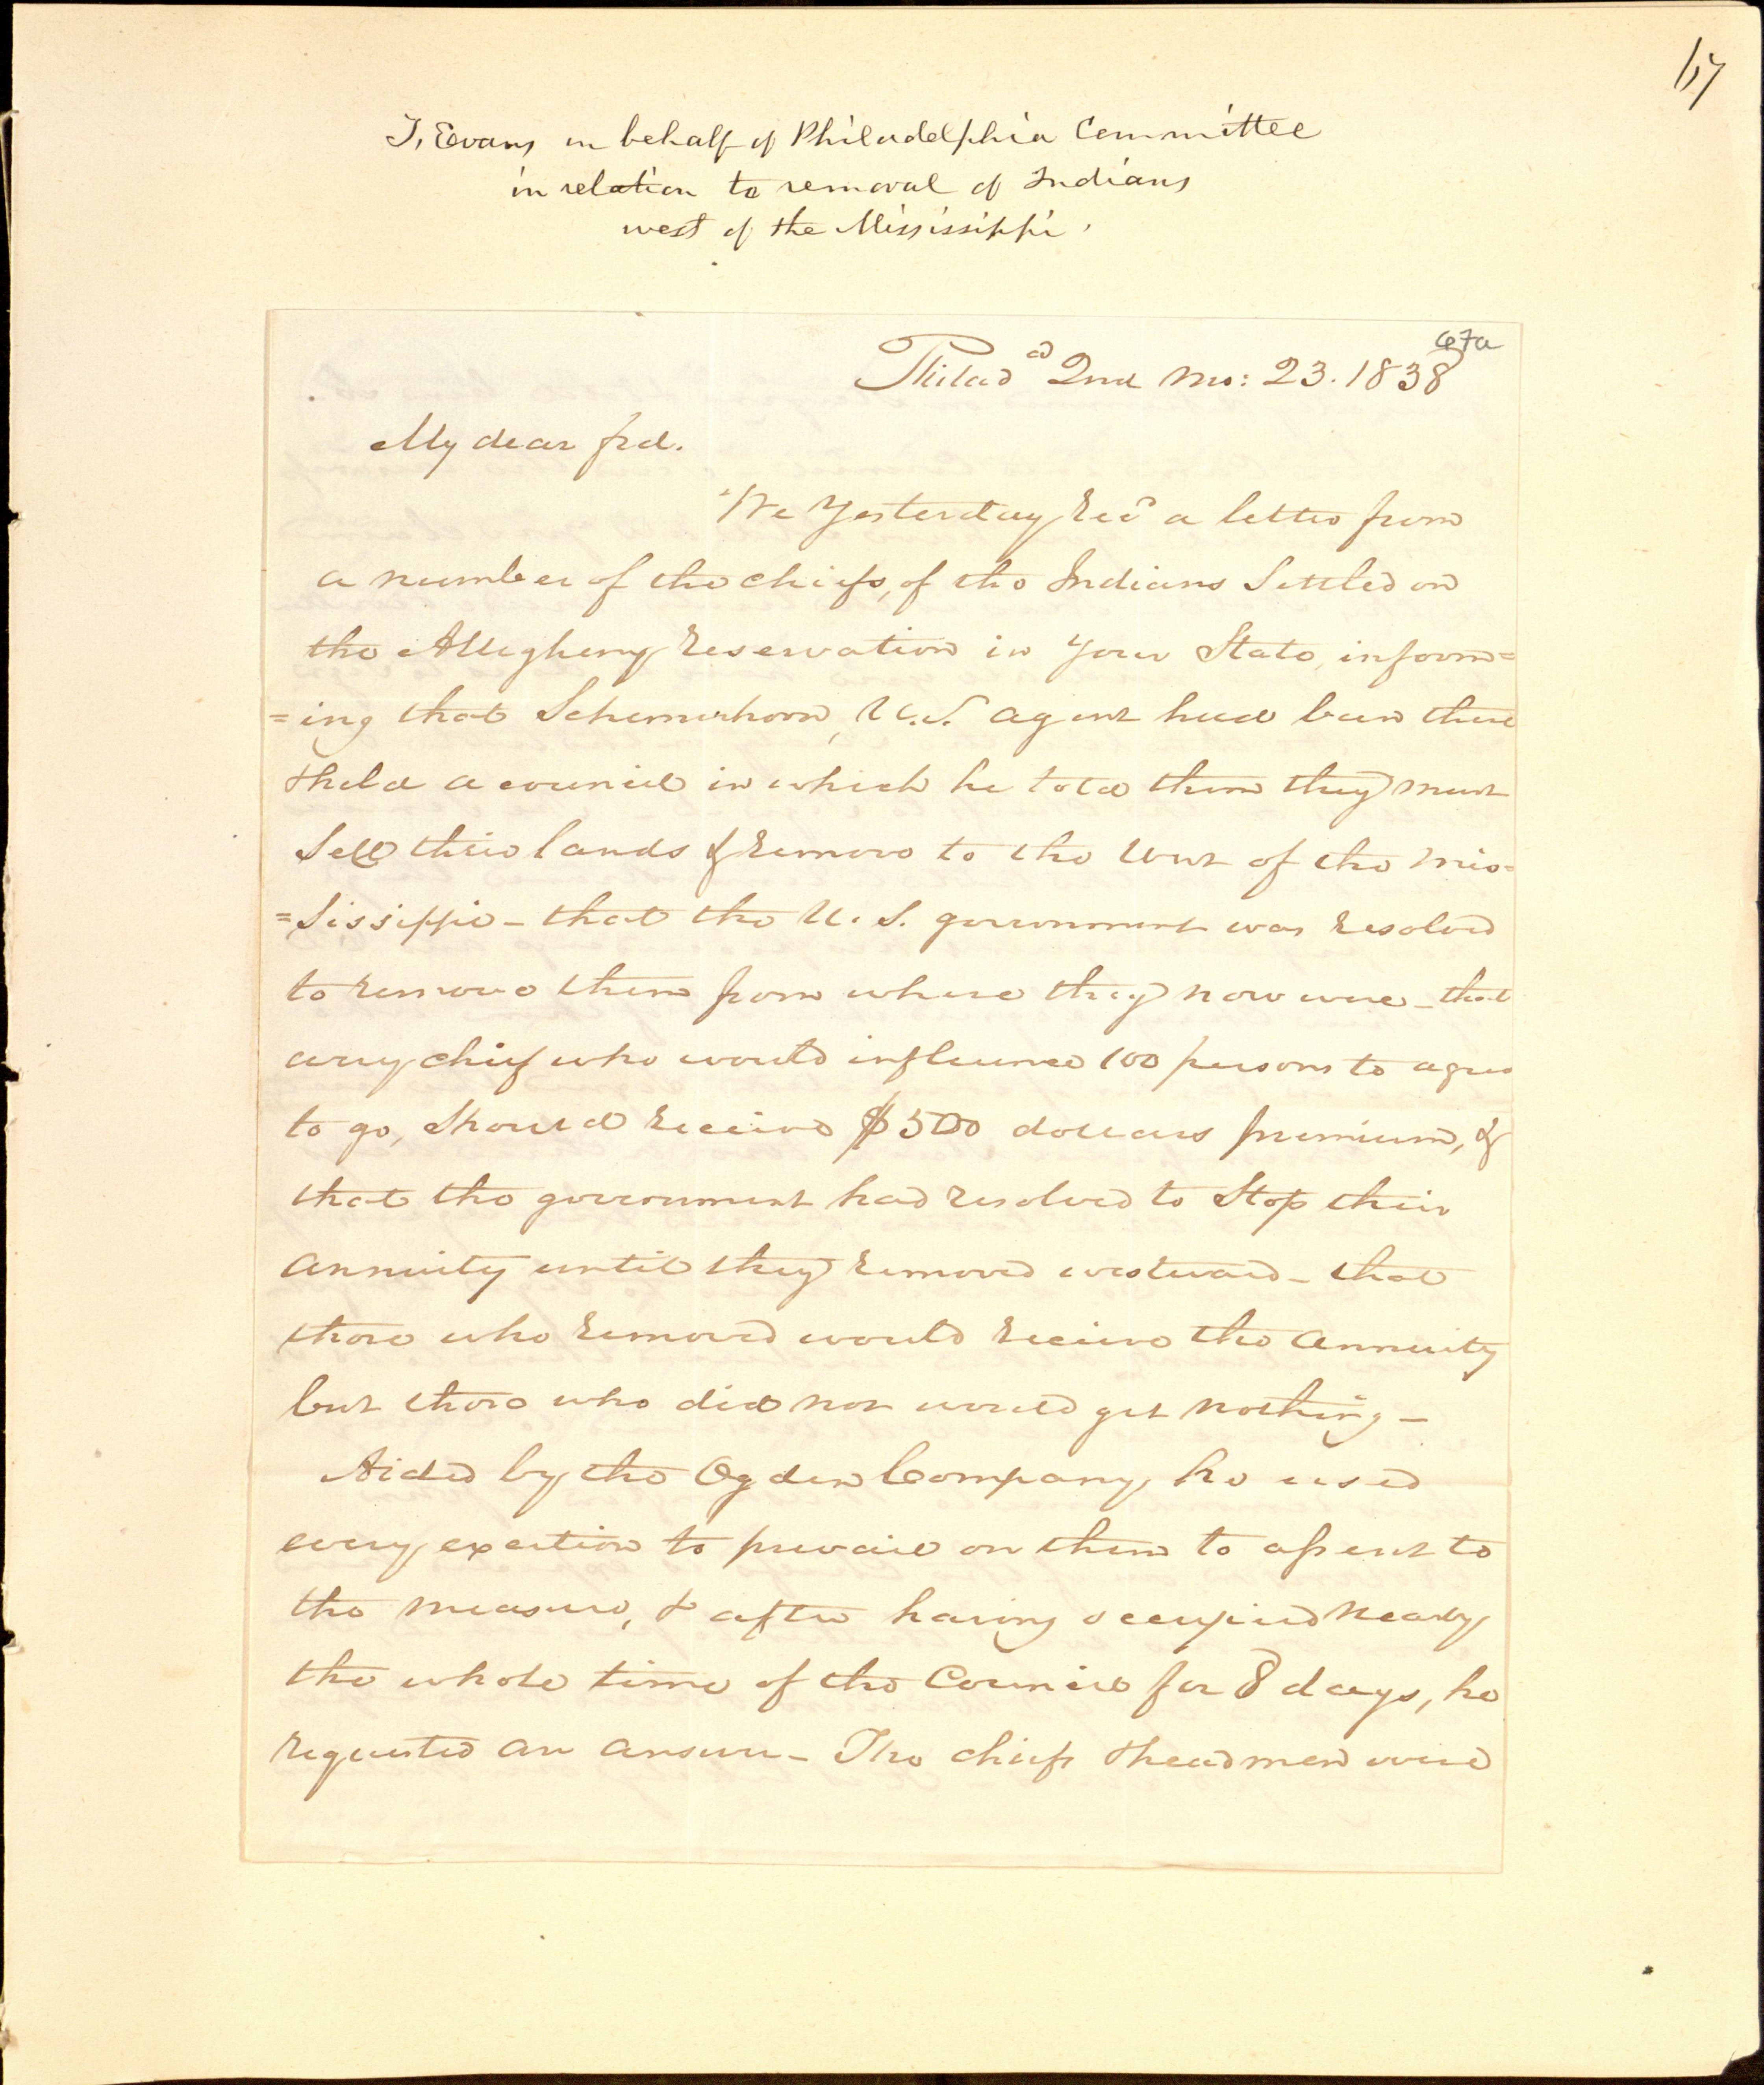 67
T. Evans in behalf of Philadelphia Committee
in relation to removal of Indians
west of the Mississippi.
67a
Philad.a 2nd mo: 23. 1838
My dear frd.
We Yesterday recd a letter from
a number of the chiefs, of the Indians Settled on
the Allegheny Reservation in your State, inform=
=ing that Schemerhorn, U.S. agent had been there
& held a council in which he told them they must
Sell their lands & remove to the West of the Mis=
=sissippi - that the U.S. government was resolved
to remove them from where they now were - that
any chief who would influence 100 persons to agree
to go, Should receive $500 dollars premium, &
that the government had resolved to Stop their
annuity until they removed westward - that
those who removed would receive the annuity
but those who did not would get nothing -
Aided by the Ogden Company, he used
every exertion to prevail on them to assent to
the measure, & after having occupied nearly
the whole time of the Council for 8 days, he
requested an answer - The chiefs & head men were